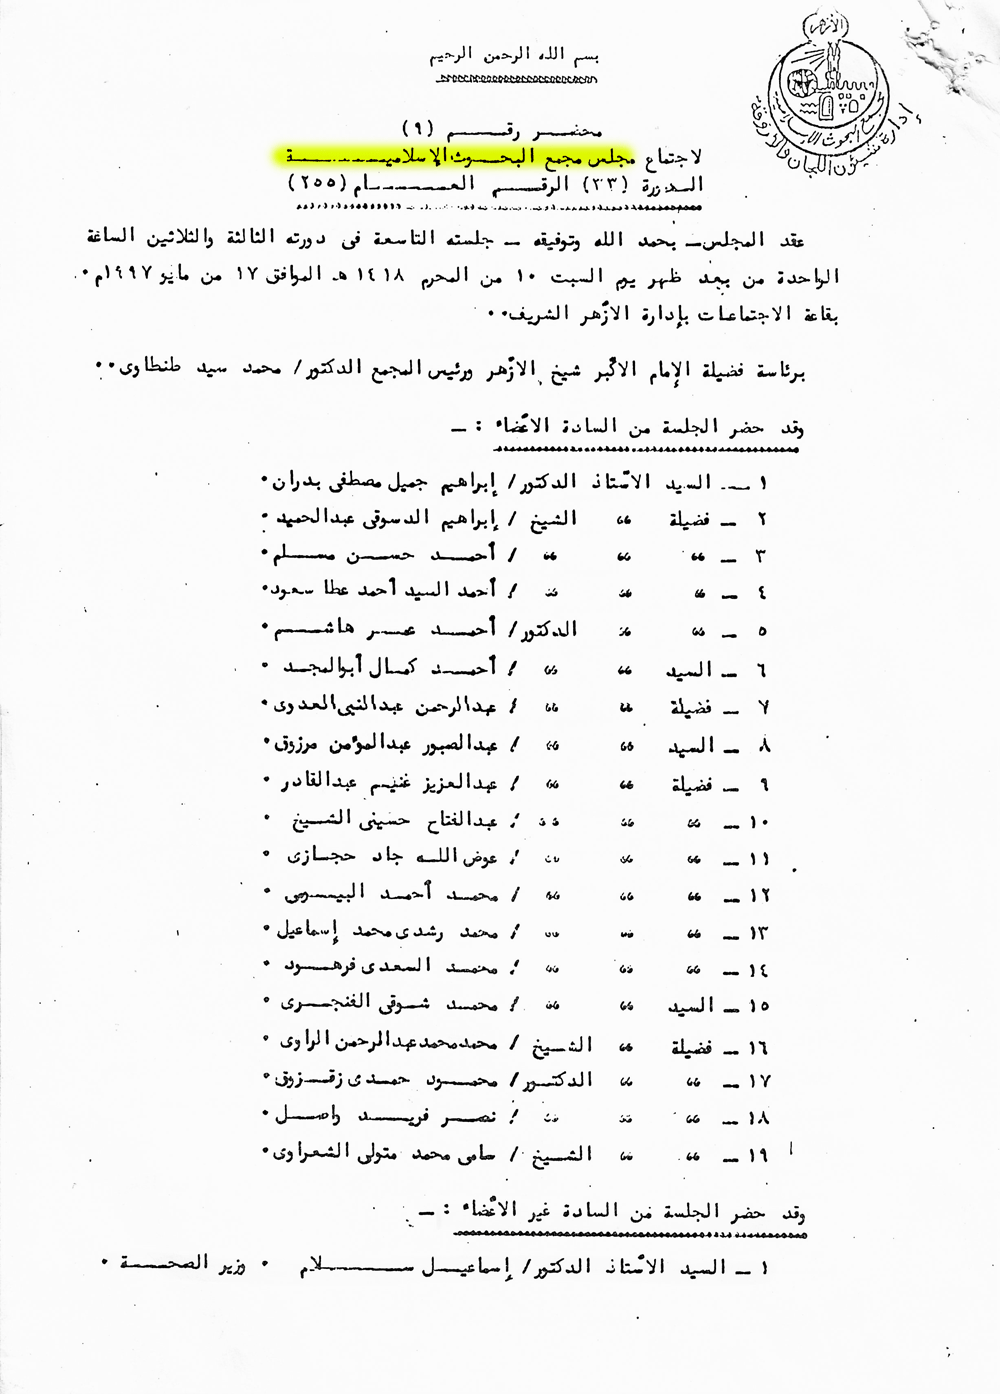 الأزهر
مجمع البحوث الإسلامية
إدارة شئون اللجان والأروقة
بسم الله الرحمن الرحيم
محضر رقم (٩)
لاجتماع مجلس مجمع البحوث الإسلامية
الدورة (٣٣) الرقم العام (٢٥٥)
عقد المجلس - بحمد الله وتوفيقه - جلسته التاسعة فى دورته الثالثة والثلاثين الساعة
الواحدة من بعد ظهر يوم السبت ١٠ من المحرم ١٤١٨ هـ الموافق ١٧ من مايو ١٩٩٧م٠
بقاعة الاجتماعات بإدارة الأزهر الشريف٠٠
برئاسة فضيلة الإمام الأكبر شيخ الأزهر ورئيس المجمع الدكتور/ محمد سيد طنطاوى٠٠
وقد حضر الجلسة من السادة الأعضاء : -
١ - السيد الأستاذ الدكتور/ إبراهيم جميل مصطفى بدران٠
٢ - فضيلة " الشيخ / إبراهيم الدسوقى عبدالحميد ٠
٣ - " " " / أحمد حسن مسلم٠
٤ - " " " / أحمد السيد أحمد عطا سعود٠
٥ - " " الدكتور/ أحمد عمر هاشم ٠
٦ - السيد " " / أحمد كمال أبوالمجد ٠
٧ - فضيلة " " / عبدالرحمن عبدالنبى العدوى ٠
٨ - السيد " " / عبدالصبور عبدالمؤمن مرزوق٠
٩ - فضيلة " " / عبدالعزيز غنيم عبدالقادر ٠
١٠ - " " " / عبدالفتاح حسينى الشيخ ٠
١١ - " " " / عوض الله جاد حجازى ٠
١٢ - " " " / محمد أحمد البيومى ٠
١٣ - " " " / محمد رشدى محمد إسماعيل ٠
١٤ - " " " / محمد السعدى فرهود ٠
١٥ - السيد " " / محمد شوقى الفنجرى ٠
١٦ - فضيلة " الشيخ / محمدمحمدعبدالرحمن الراوى ٠
١٧ - " " الدكتور/ محمود حمدى زقزوق٠
١٨ - " " " / نصر فريد واصل ٠
١٩ - " " الشيخ / سامى محمد متولى الشعراوى٠
وقد حضر الجلسة من السادة غير الأعضاء : -
١ - السيد الأستاذ الدكتور/ إسماعيل سلام ٠ وزير الصحة ٠